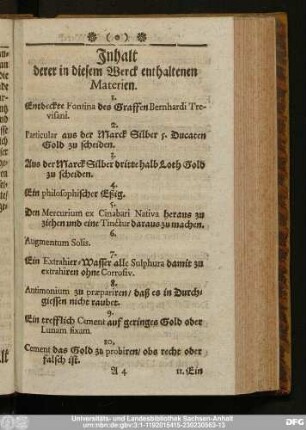 ( o )
Inhalt
derer in diesem Werck enthaltenen
Materien.
1.
Entdeckte Fontina des Graffen Bernhardi Tre-
visani.
2.
Particular aus der Marck Silber 5. Ducaten
Gold zu scheiden.
3.
Aus der Marck Silber dritte halb Loth Gold
zu scheiden.
4.
Ein philosophischer Eßig.
5.
Den Mercurium ex Cinabari Nativa heraus zu
ziehen und eine Tinctur daraus zu machen.
6.
Augmentum Solis.
7.
Ein Extrahier-Wasser alle Sulphura damit zu
extrahiren ohne Corrosiv.
8.
Antimonium zu præpariren / daß es in Durch-
giessen nicht raubet.
9.
Ein trefflich Cement auf geringes Gold oder
Lunam fixam.
10.
Cement das Gold zu probiren / obs recht oder
falsch ist.
A 4
11. Ein
Universitäts- und Landesbibliothek Sachsen-Anhalt
urn:nbn:de:gbv:3:1-1192015415-230230563-13
DFG